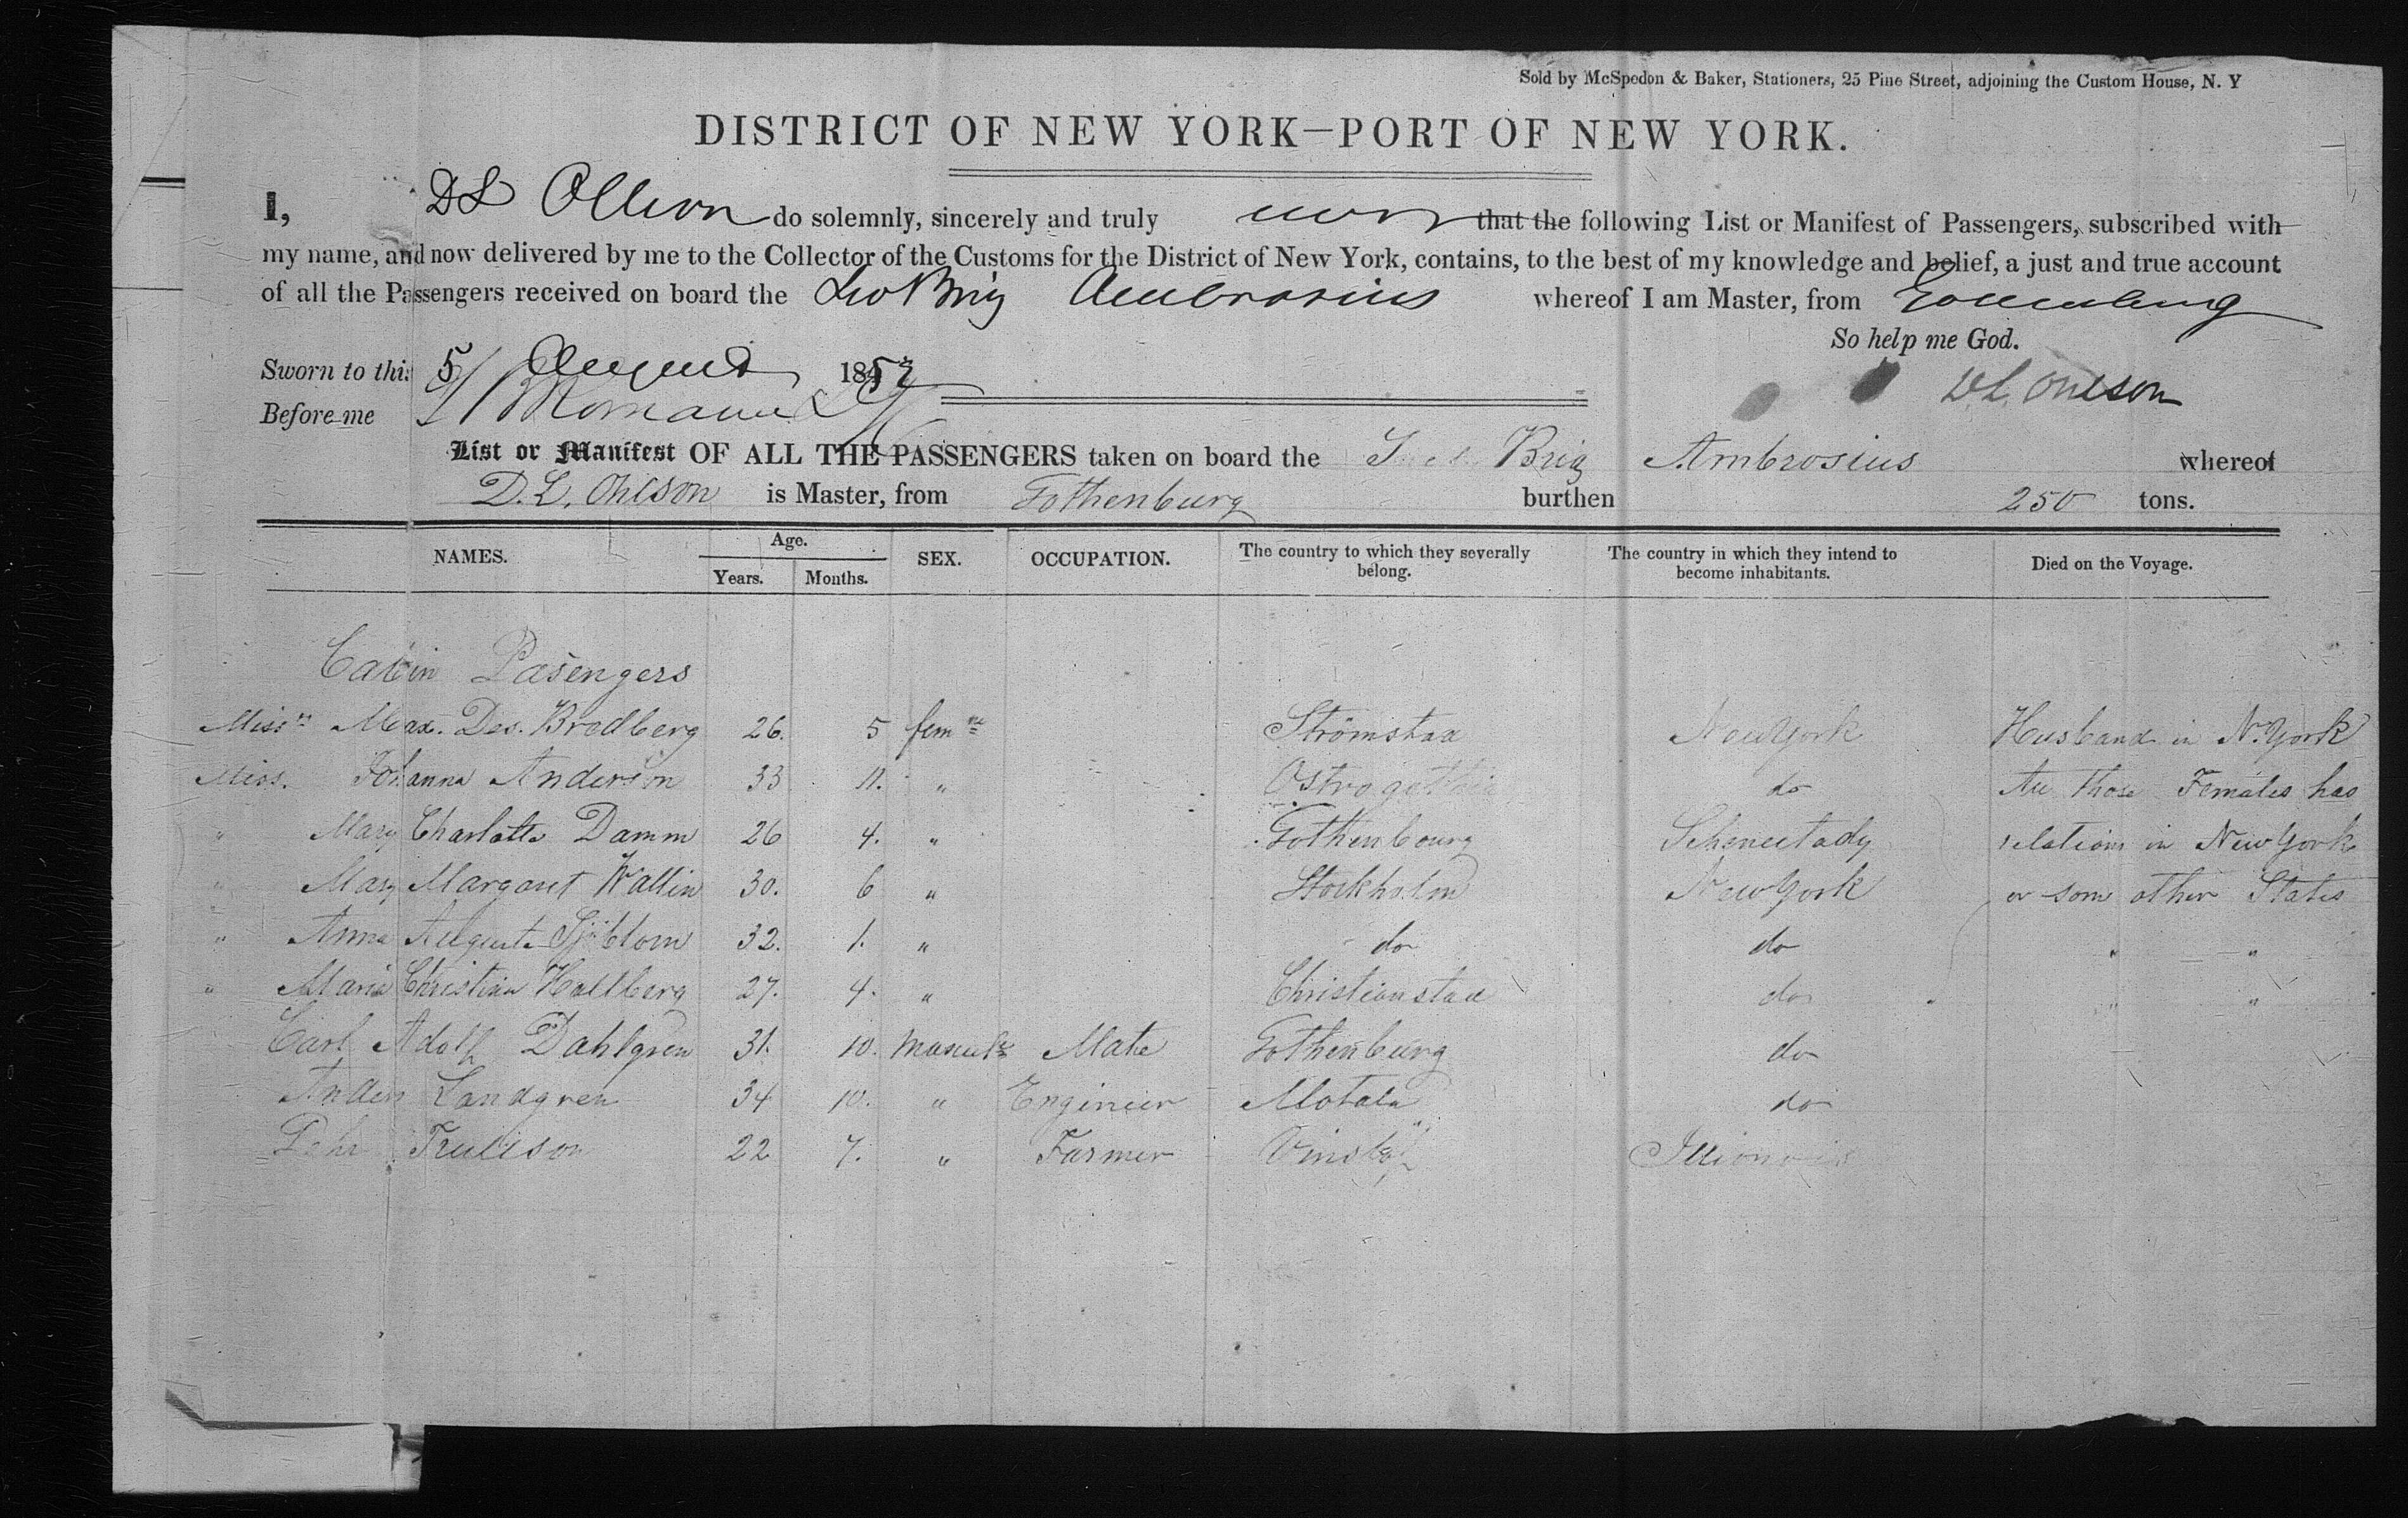 Sold by McSpedon & Baker, Stationers, 25 Pine Street, adjoining the Custom House, N. Y
DISTRICT OF NEW YORK—PORT OF NEW YORK.
I, D L do solemnly, sincerely and truly that the following List or Manifest of Passengers, subscribed with
my name, and now delivered by me to the Collector of the Customs for the District of New York, contains, to the best of my knowledge and belief, a just and true account
of all the Passengers received on board the Brig Ambrosius whereof I am Master, from
So help me God.
Sworn to this 5 August 1852
Before me
D L Ohlson
List or Manifest OF ALL THE PASSENGERS taken on board the Brig Ambrosius whereof
D. L. Ohlson is Master, from Gothenburg burthen 250 tons.
NAMES. Age. Years. Months. SEX. OCCUPATION. The country to which they severally belong. The country in which they intend to become inhabitants. Died on the Voyage.
Cabin Pasengers
Max. Des. Bredberg 26. 5 Strömstad New York Husband in N. York
Miss. Johanna Anderson 33 11. " do All those Females has
" Mary Charlotte Damm 26 4. " Gothenbourg Schenectady relations in New York
" Mary Margaret Wallin 30. 6 " Stockholm New York or som other States
" Anna Augusta Sjöblom 32. 1. " do do " "
" Maria Christina Hallberg 27. 4. " Christianstad do " "
Carl Adolf Dahlgren 31. 10. Mate Gothenburg do
Anders Landgren 34 10. " Engineer Motala do
Pehr Trulson 22 7. " Farmer